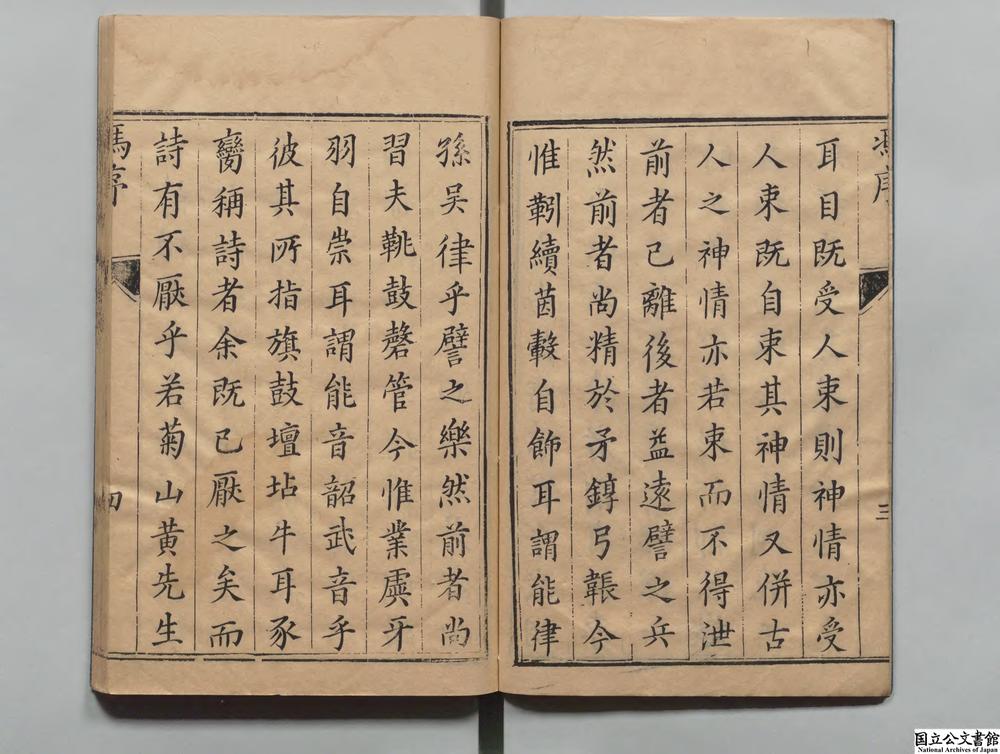 馮序
三
耳目既受人束則神情亦受
人束既自束其神情又併古
人之神情亦若束而不得泄
前者已離後者益遠譬之兵
然前者尚精於矛錞弓韔今
惟靷續茵轂自飾耳謂能律
孫吳律乎譬之樂然前者尚
習夫鼗鼓磬管今惟業虡牙
羽自崇耳謂能音韶武音乎
彼其所指旗鼓壇坫牛耳豕
臠稱詩者余既已厭之矣而
詩有不厭乎若菊山黃先生
馮序
四
国立公文書館
National Archives of Japan